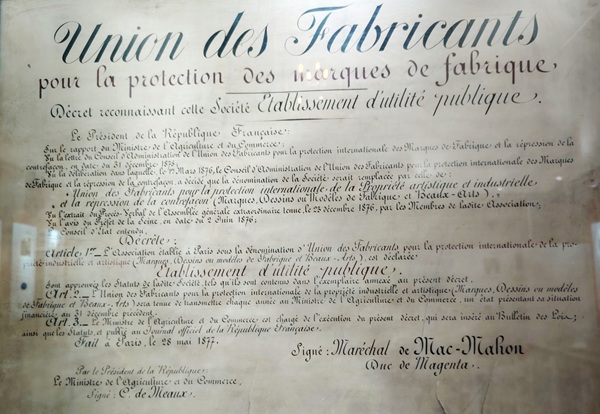 Union des Fabricants
pour la protection des marques de fabrique,
Décret reconnaissant cette Société Etablissement d'utilité publique.
Le Président de la République Française:
Sur le rapport du Ministre de l'Agriculture et du Commerce;
Vu la lettre du Conseil d'Administration de l'Union des Fabricants pour la protection internationale des Marques de Fabrique et la répression de la
contrefaçon, en date du 31 décembre 1875;
Vu la délibération dans laquelle, le 1er Mars 1876, le Conseil d'Administration de l'Union des Fabricants pour la protection internationale des Marques
de Fabrique et la répression de la contrefaçon a décidé que la dénomination de la Société serait remplacée par celle de:
"Union des Fabricants pour la protection internationale de la Propriété artistique et industrielle
et la répression de la contrefaçon (Marques, Dessins ou Modèles de Fabrique et Beaux-Arts);
Vu l'extrait du Procès-Verbal de l'Assemblée générale extraordinaire tenue, le 23 décembre 1876, par les Membres de ladite Association;
Vu l'avis du Préfet de la Seine, en date du 2 Juin 1876;
Le Conseil d'Etat entendu,
Décrète:
Article 1er_ L'Association établie à Paris sous la dénomination d'Union des Fabricants, pour la protection internationale de la pro-
priété industrielle et artistique (Marques, Dessins ou modèles de Fabrique et Beaux-Arts), est déclarée
Etablissement d'utilité publique.
Sont approuvés les Statuts de ladite Société, tels qu'ils sont contenus dans l'exemplaire annexé au présent décret.
Art. 2._ L'Union des Fabricants pour la protection internationale de la propriété industrielle et artistique (Marques, Dessins ou modèles
de Fabrique et Beaux-Arts) sera tenue de transmettre chaque année au Ministre de l'Agriculture et du Commerce, un état présentant sa situation
financière au 31 décembre précédent.
Art. 3._ Le Ministre de l'Agriculture et du Commerce est chargé de l'exécution du présent décret, qui sera inséré au Bulletin des Lois,
ainsi que les Statuts, et publié au Journal officiel de la République Française.
Fait à Paris, le 28 mai 1877.
Signé: Maréchal de Mac-Mahon
Duc de Magenta.
Par le Président de la République,
Le Ministre de l'Agriculture et du Commerce,
Signé: C. de Meaux.